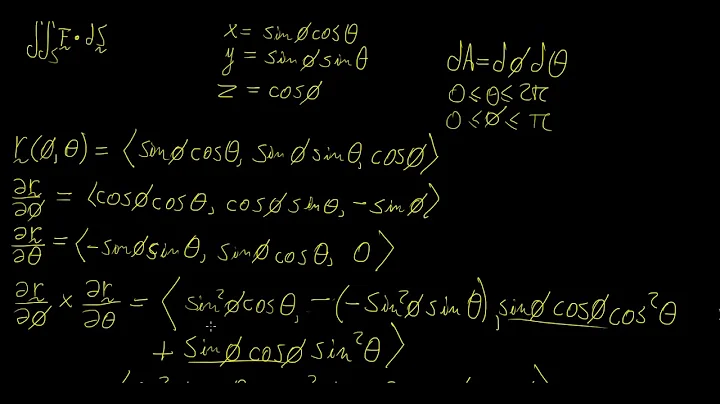 ∬_S F · dS
x = sinϕcosθ
y = sinϕsinθ
z = cosϕ
dA = dϕdθ
0 ≤ θ ≤ 2π
0 ≤ ϕ ≤ π
r(ϕ,θ) = ⟨sinϕcosθ, sinϕsinθ, cosϕ⟩
∂r/∂ϕ = ⟨cosϕcosθ, cosϕsinθ, -sinϕ⟩
∂r/∂θ = ⟨-sinϕsinθ, sinϕcosθ, 0⟩
∂r/∂ϕ × ∂r/∂θ = ⟨sin²ϕcosθ, -(-sin²ϕsinθ), sinϕcosϕcos²θ
+ sinϕcosϕsin²θ⟩